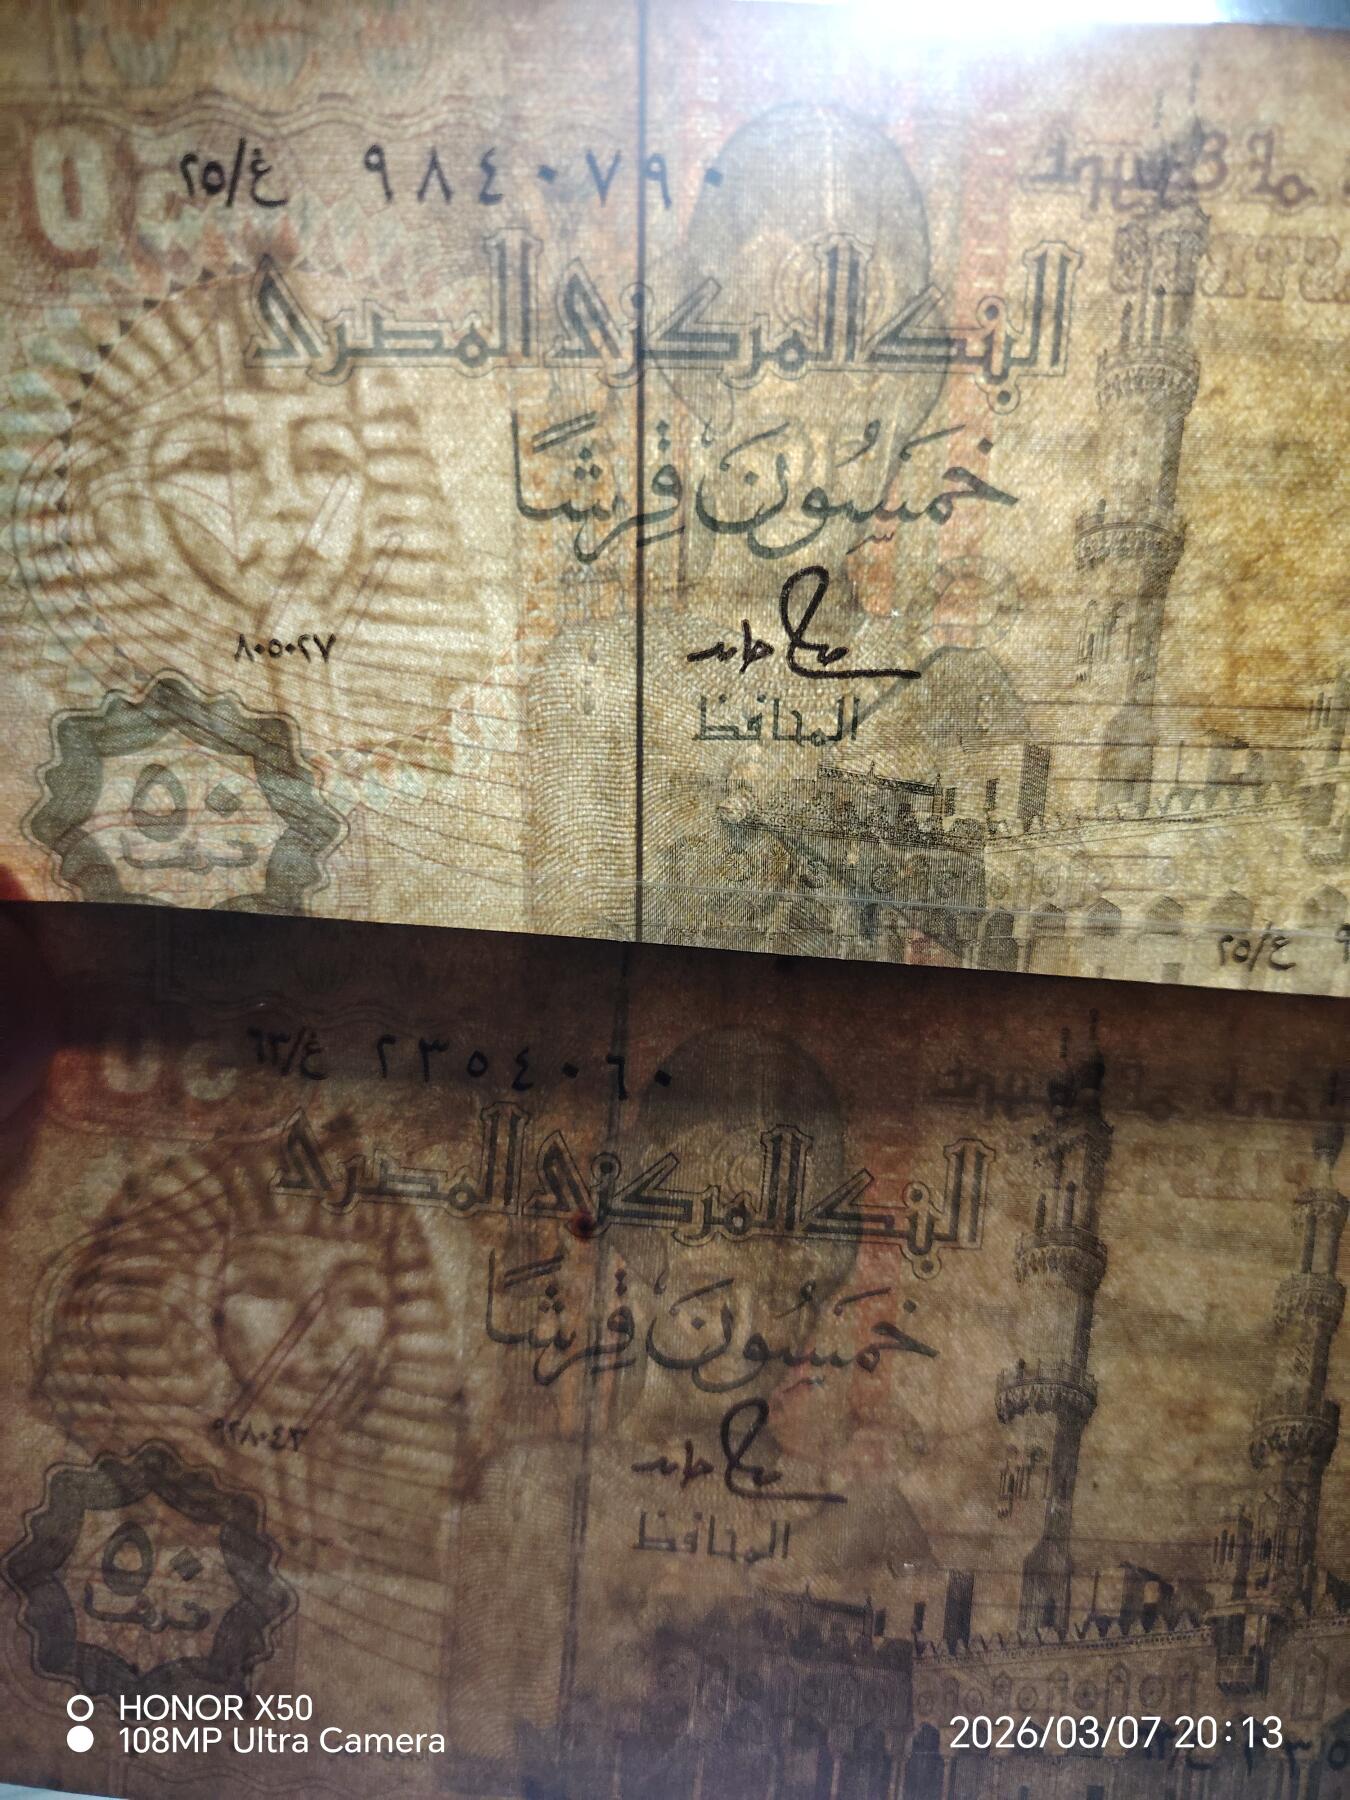 ٢٥/غ ٩٨٤٠٧٩٠
البنك المركزى المصرى
خَمسُونَ قِرشًا
المحافظ
٨٠٥٠٢٧
٥٠
قرشا
٢٥/غ ٩
٦٢/غ ٢٣٥٤٠٦٠
البنك المركزى المصرى
خَمسُونَ قِرشًا
المحافظ
٥٠
قرشا
HONOR X50
108MP Ultra Camera
2026/03/07 20:13